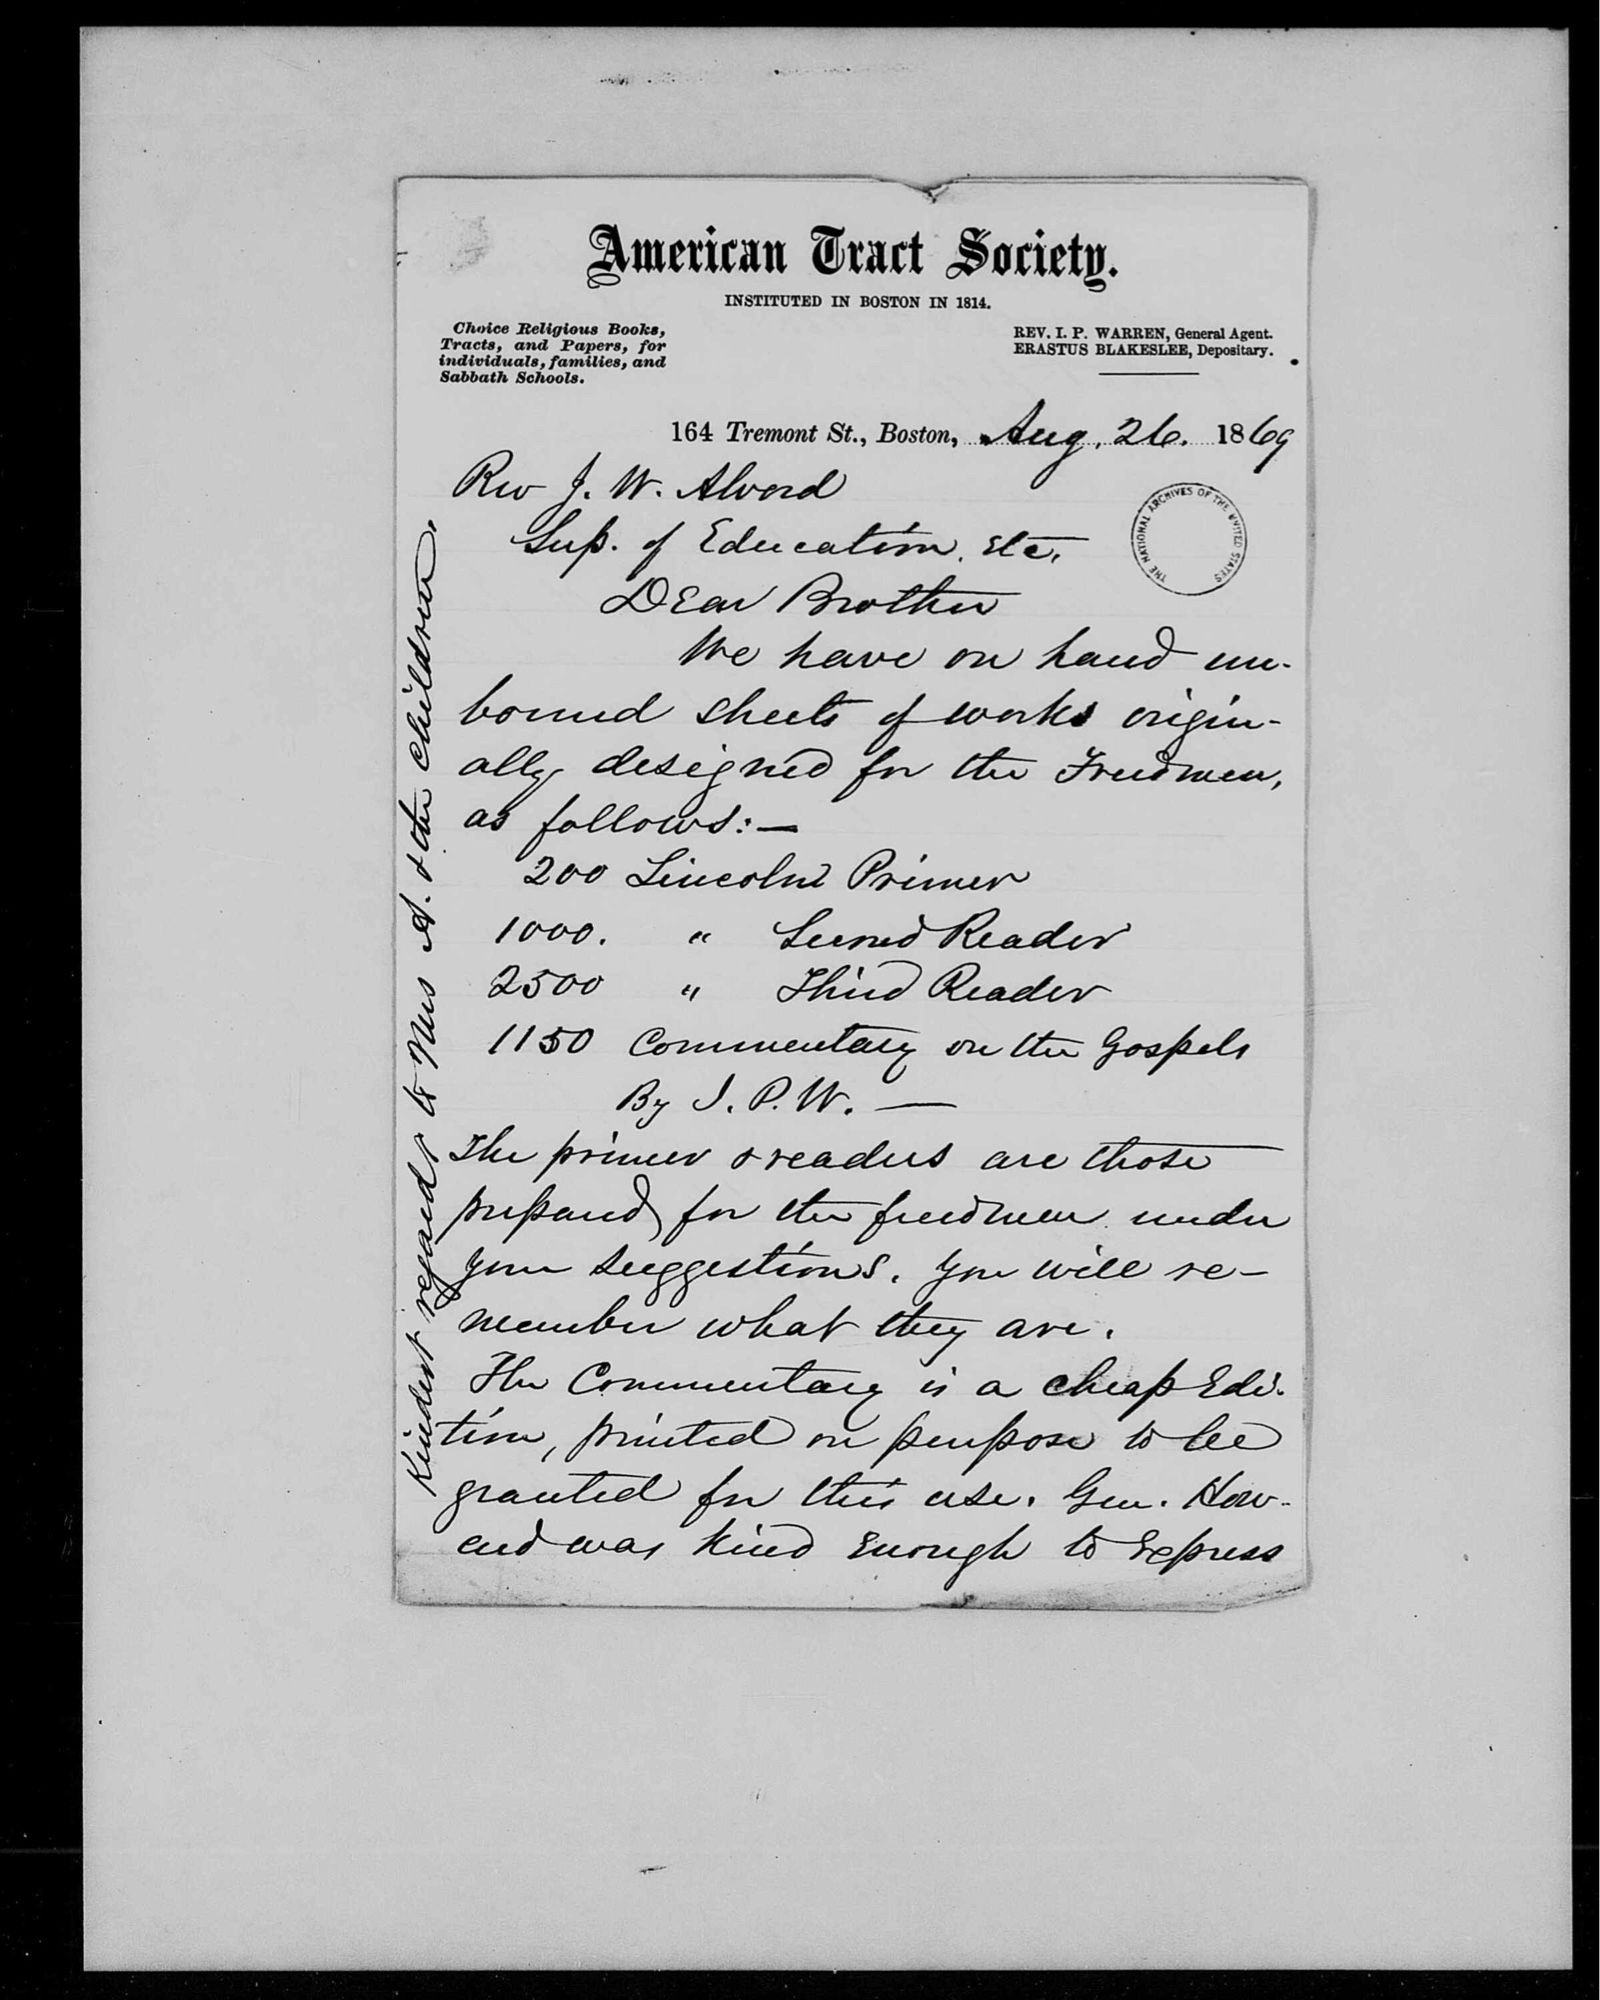 American Tract Society.
INSTITUTED IN BOSTON IN 1814.
Choice Religious Books,
Tracts, and Papers, for
individuals, families, and
Sabbath Schools.
REV. I. P. WARREN, General Agent.
ERASTUS BLAKESLEE, Depositary.
164 Tremont St., Boston, Aug. 26. 1869
Rev J. W. Alvord
Sup. of Education, Etc.
THE NATIONAL ARCHIVES OF THE UNITED STATES
Dear Brother
We have on hand un-
bound sheets of works origin-
ally designed for the Freedmen,
as follows:—
200 Lincoln Primer
1000. " Second Reader
2500 " Third Reader
1150 Commentary on the Gospels
By I. P. W. —
The primer & readers are those
prepared for the freedmen under
your suggestions. You will re-
member what they are.
The Commentary is a cheap Edi-
tion, printed on purpose to be
granted for this use. Gen. How-
ard was kind enough to express
Kindest regards to Mrs A. & the children.